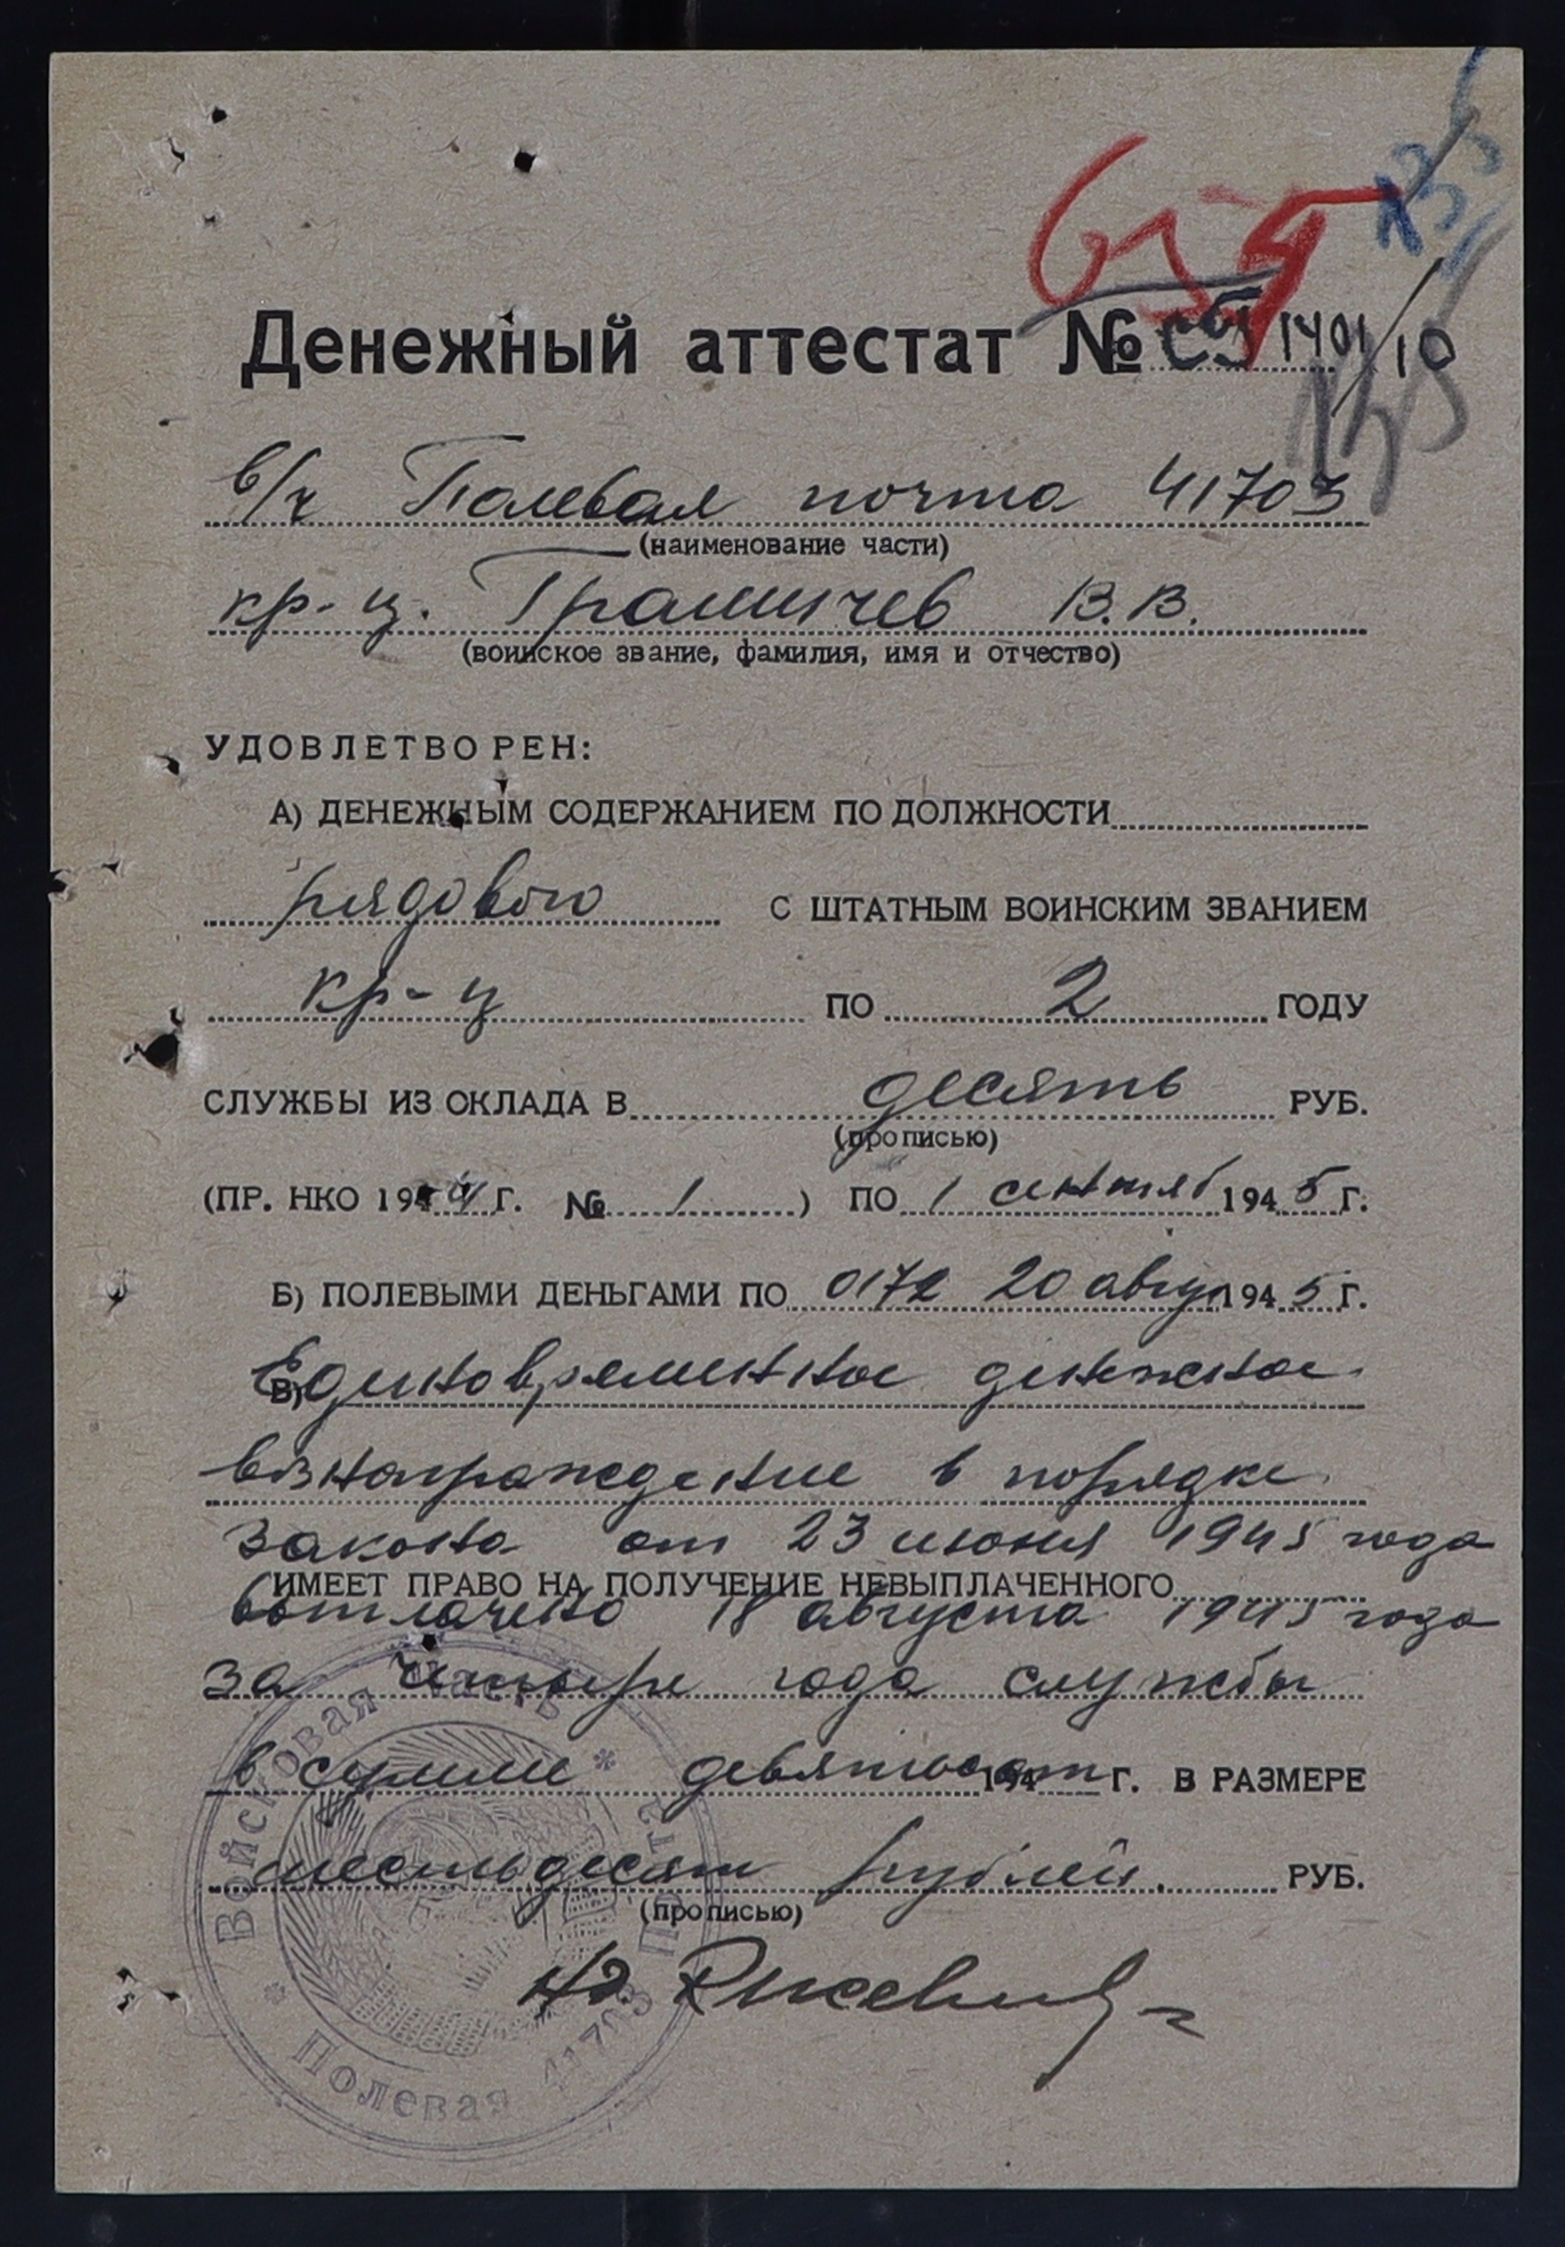 Денежный аттестат № 1401/10
в/ч Полевая почта 41703
(наименование части)
кр-ц. В.В.
(воинское звание, фамилия, имя и отчество)
УДОВЛЕТВОРЕН:
А) ДЕНЕЖНЫМ СОДЕРЖАНИЕМ ПО ДОЛЖНОСТИ
рядового С ШТАТНЫМ ВОИНСКИМ ЗВАНИЕМ
кр-ц ПО 2 ГОДУ
СЛУЖБЫ ИЗ ОКЛАДА В десять РУБ.
(прописью)
(ПР. НКО 1941 Г. № 1 ) ПО 1 сентяб 1945 Г.
Б) ПОЛЕВЫМИ ДЕНЬГАМИ ПО 20 август 1945 Г.
В) Единовременное денежное
вознаграждение в порядке
закона от 23 июня 1945 года
ИМЕЕТ ПРАВО НА ПОЛУЧЕНИЕ НЕВЫПЛАЧЕННОГО
выплачено 18 августа 1945 года
за четыре года службы
в сумме девятьсот 194 Г. В РАЗМЕРЕ
шестьдесят рублей. РУБ.
(прописью)
Войсковая часть * Полевая почта 41703 *